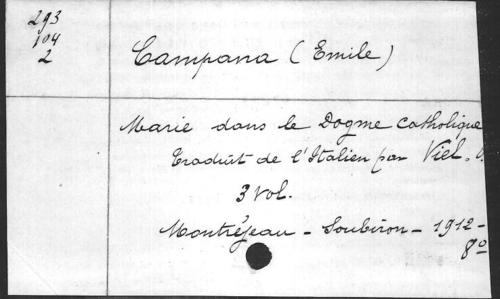 293
104
2
Campana (Emile)
Marie dans le Dogme Catholique
Traduit de l'Italien par Viel.
3 Vol.
Montréjeau - Soubiron - 1912 -
8º